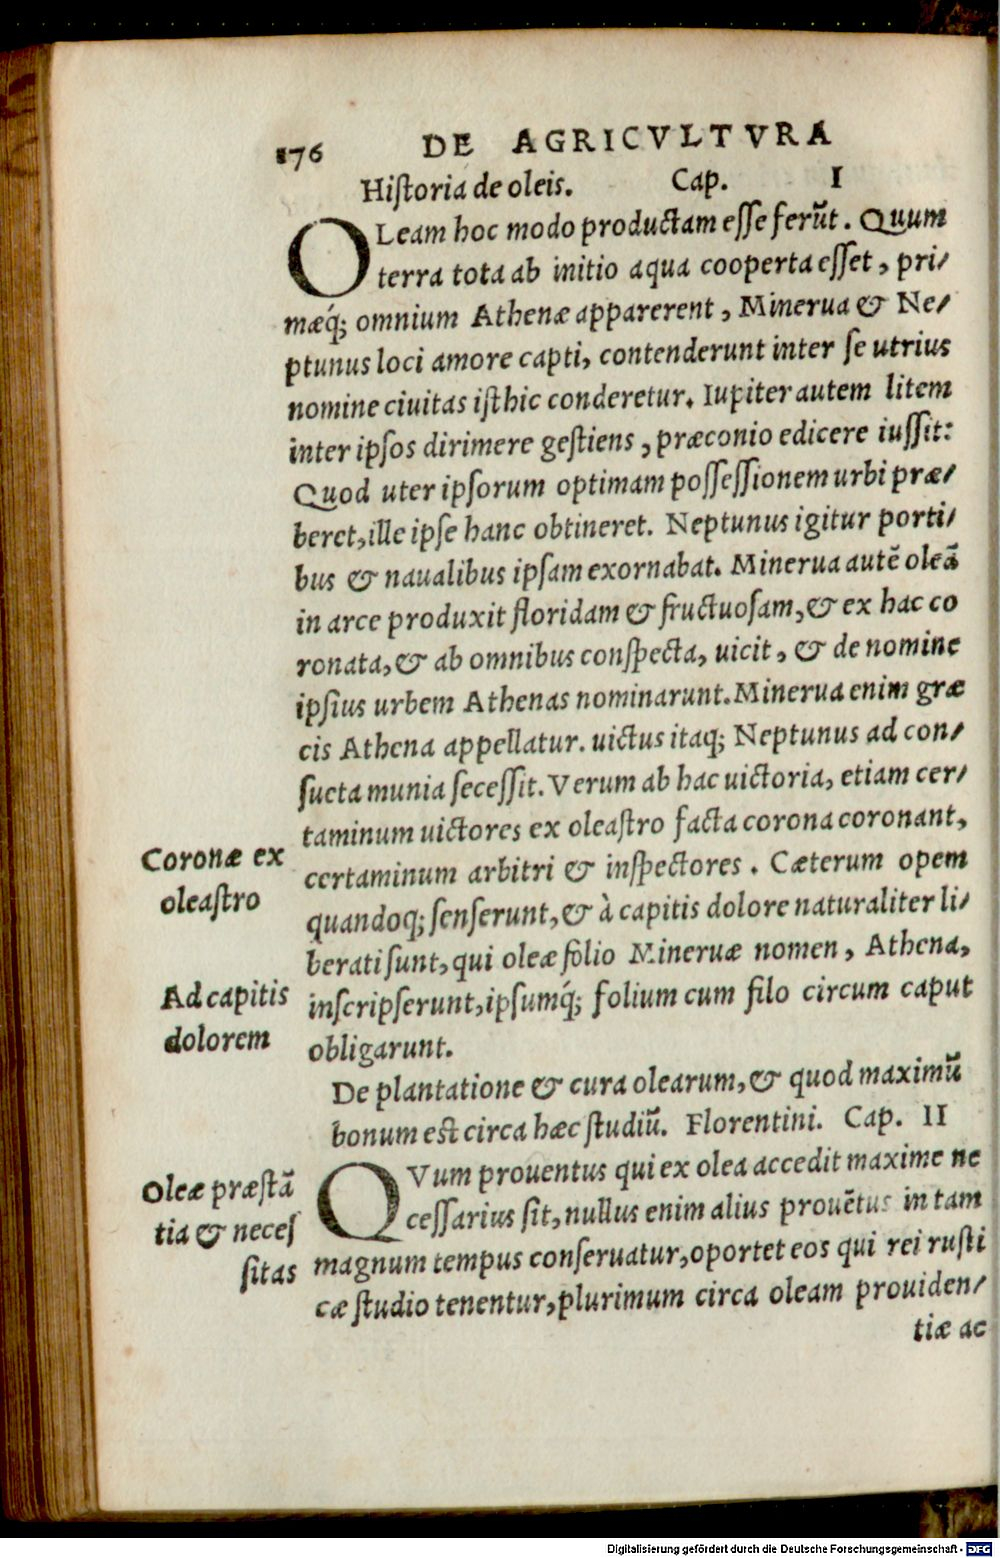 176 DE AGRICVLTVRA
Hiſtoria de oleis. Cap. I
OLeam hoc modo productam eſſe ferũt. Quum
terra tota ab initio aqua cooperta eſſet, pri/
mæq́; omnium Athenæ apparerent, Minerua & Ne/
ptunus loci amore capti, contenderunt inter ſe utrius
nomine ciuitas iſthic conderetur. Iupiter autem litem
inter ipſos dirimere geſtiens, præconio edicere iuſſit:
Quod uter ipſorum optimam poſſeſſionem urbi præ/
beret, ille ipſe hanc obtineret. Neptunus igitur porti/
bus & naualibus ipſam exornabat. Minerua autẽ oleã
in arce produxit floridam & fructuoſam, & ex hac co
ronata, & ab omnibus conſpecta, uicit, & de nomine
ipſius urbem Athenas nominarunt. Minerua enim græ
cis Athena appellatur. uictus itaq; Neptunus ad con/
ſueta munia ſeceſſit. Verum ab hac uictoria, etiam cer/
taminum uictores ex oleaſtro facta corona coronant,
certaminum arbitri & inſpectores. Cæterum opem
quandoq; ſenſerunt, & à capitis dolore naturaliter li/
berati ſunt, qui oleæ folio Mineruæ nomen, Athena,
inſcripſerunt, ipſumq́; folium cum filo circum caput
obligarunt.
Coronæ ex
oleaſtro
Ad capitis
dolorem
De plantatione & cura olearum, & quod maximũ
bonum est circa hæc ſtudiũ. Florentini. Cap. II
QVum prouentus qui ex olea accedit maxime ne
ceſſarius ſit, nullus enim alius prouẽtus in tam
magnum tempus conſeruatur, oportet eos qui rei ruſti
cæ ſtudio tenentur, plurimum circa oleam prouiden/
tiæ ac
Oleæ præſtã
tia & neceſ
ſitas
Digitalisierung gefördert durch die Deutsche Forschungsgemeinschaft - DFG